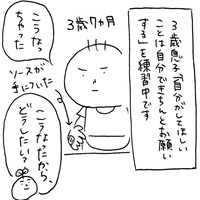 3歳息子「自分がしてほしい
ことは自分できちんとお願い
する」を練習中です
3歳7ヵ月
こうなっ
ちゃった
ソースが
手についた
こうなったから、
どうしたい?